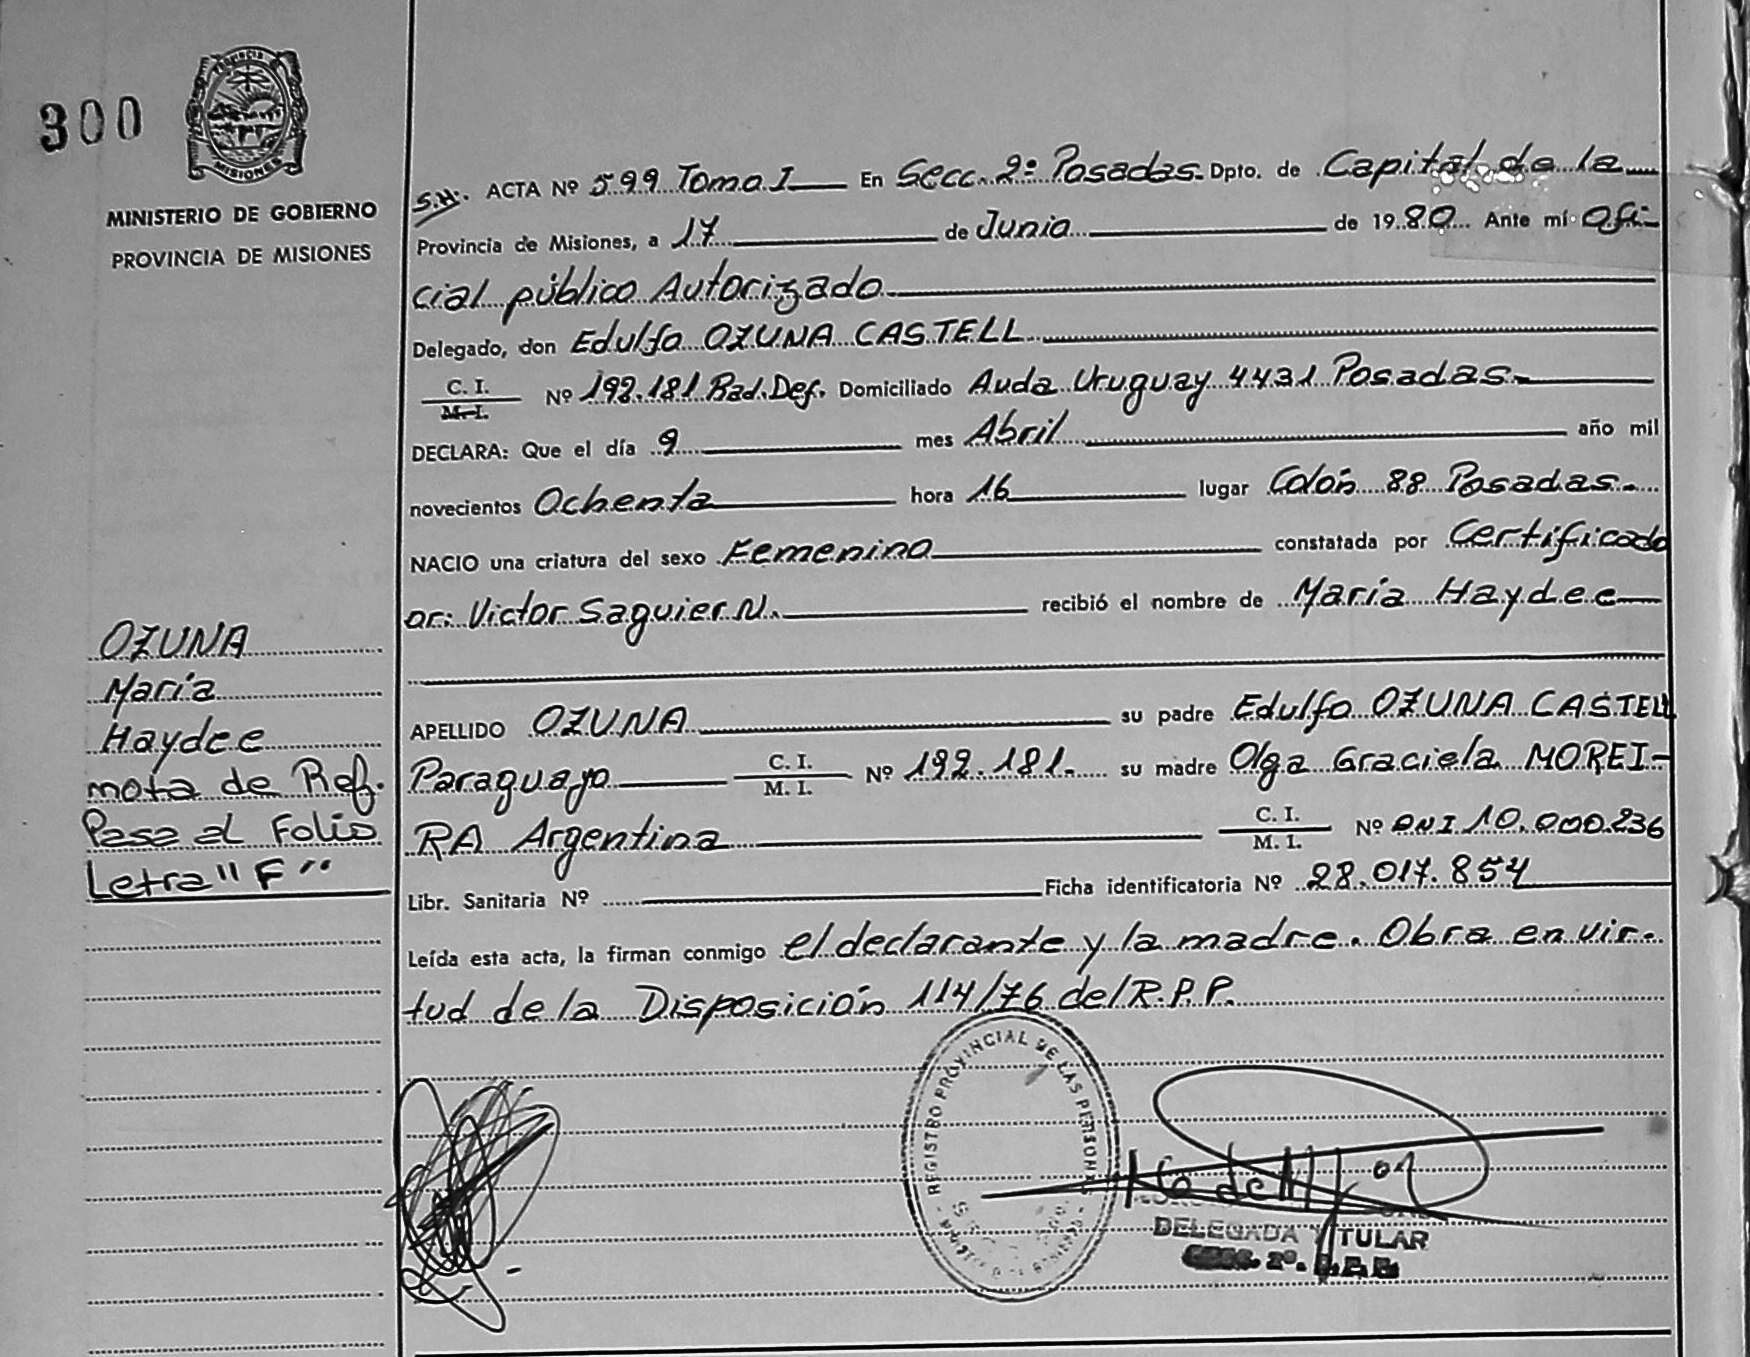 300
PROVINCIA DE
MISIONES
MINISTERIO DE GOBIERNO
PROVINCIA DE MISIONES
OZUNA
María
Haydee
nota de Ref.
Pasa al Folio
Letra "F"
S.H. ACTA Nº 599 Tomo I En Secc. 2ª Posadas Dpto. de Capital de la
Provincia de Misiones, a 17 de Junio de 1980 Ante mí Ofi-
cial público Autorizado
Delegado, don Edulfo OZUNA CASTELL
C. I.
M. I. Nº 192.181 Rad. Def. Domiciliado Avda Uruguay 4431 Posadas
DECLARA: Que el día 9 mes Abril año mil
novecientos Ochenta hora 16 lugar Colón 88 Posadas
NACIO una criatura del sexo Femenino constatada por Certificado
Dr: Victor Saguier N. recibió el nombre de María Haydee
APELLIDO OZUNA su padre Edulfo OZUNA CASTELL
Paraguayo C. I.
M. I. Nº 192.181.- su madre Olga Graciela MOREI-
RA Argentina C. I.
M. I. Nº DNI 10.000.236
Libr. Sanitaria Nº Ficha identificatoria Nº 28.017.854
Leída esta acta, la firman conmigo el declarante y la madre. Obra en vir-
tud de la Disposición 114/76 del R.P.P.
REGISTRO PROVINCIAL DE LAS PERSONAS
DELEGADA TITULAR
2ª. R.P.P.